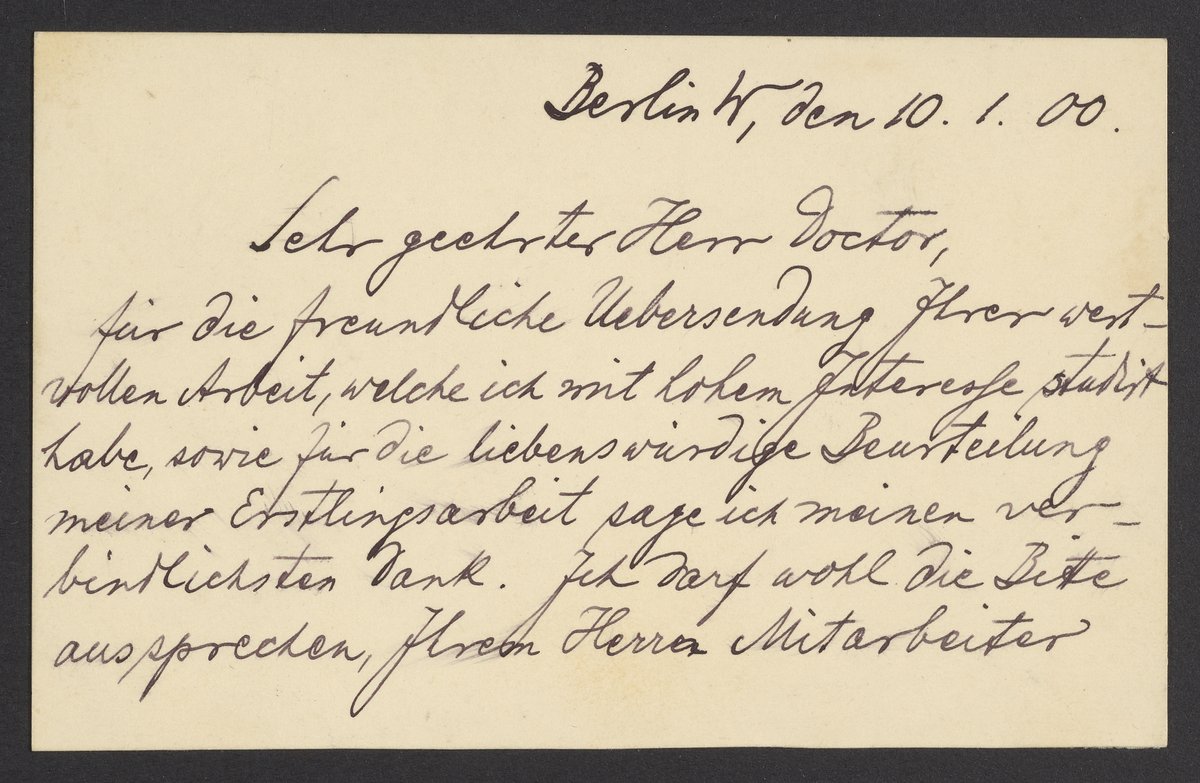 Berlin W, den 10. 1. 00.
Sehr geehrter Herr Doctor,
für die freundliche Uebersendung Ihrer wert-
vollen Arbeit, welche ich mit hohem Interesse studirt
habe, sowie für die liebenswürdige Beurteilung
meiner Erstlingsarbeit sage ich meinen ver-
bindlichsten Dank. Ich darf wohl die Bitte
aussprechen, Ihrem Herren Mitarbeiter